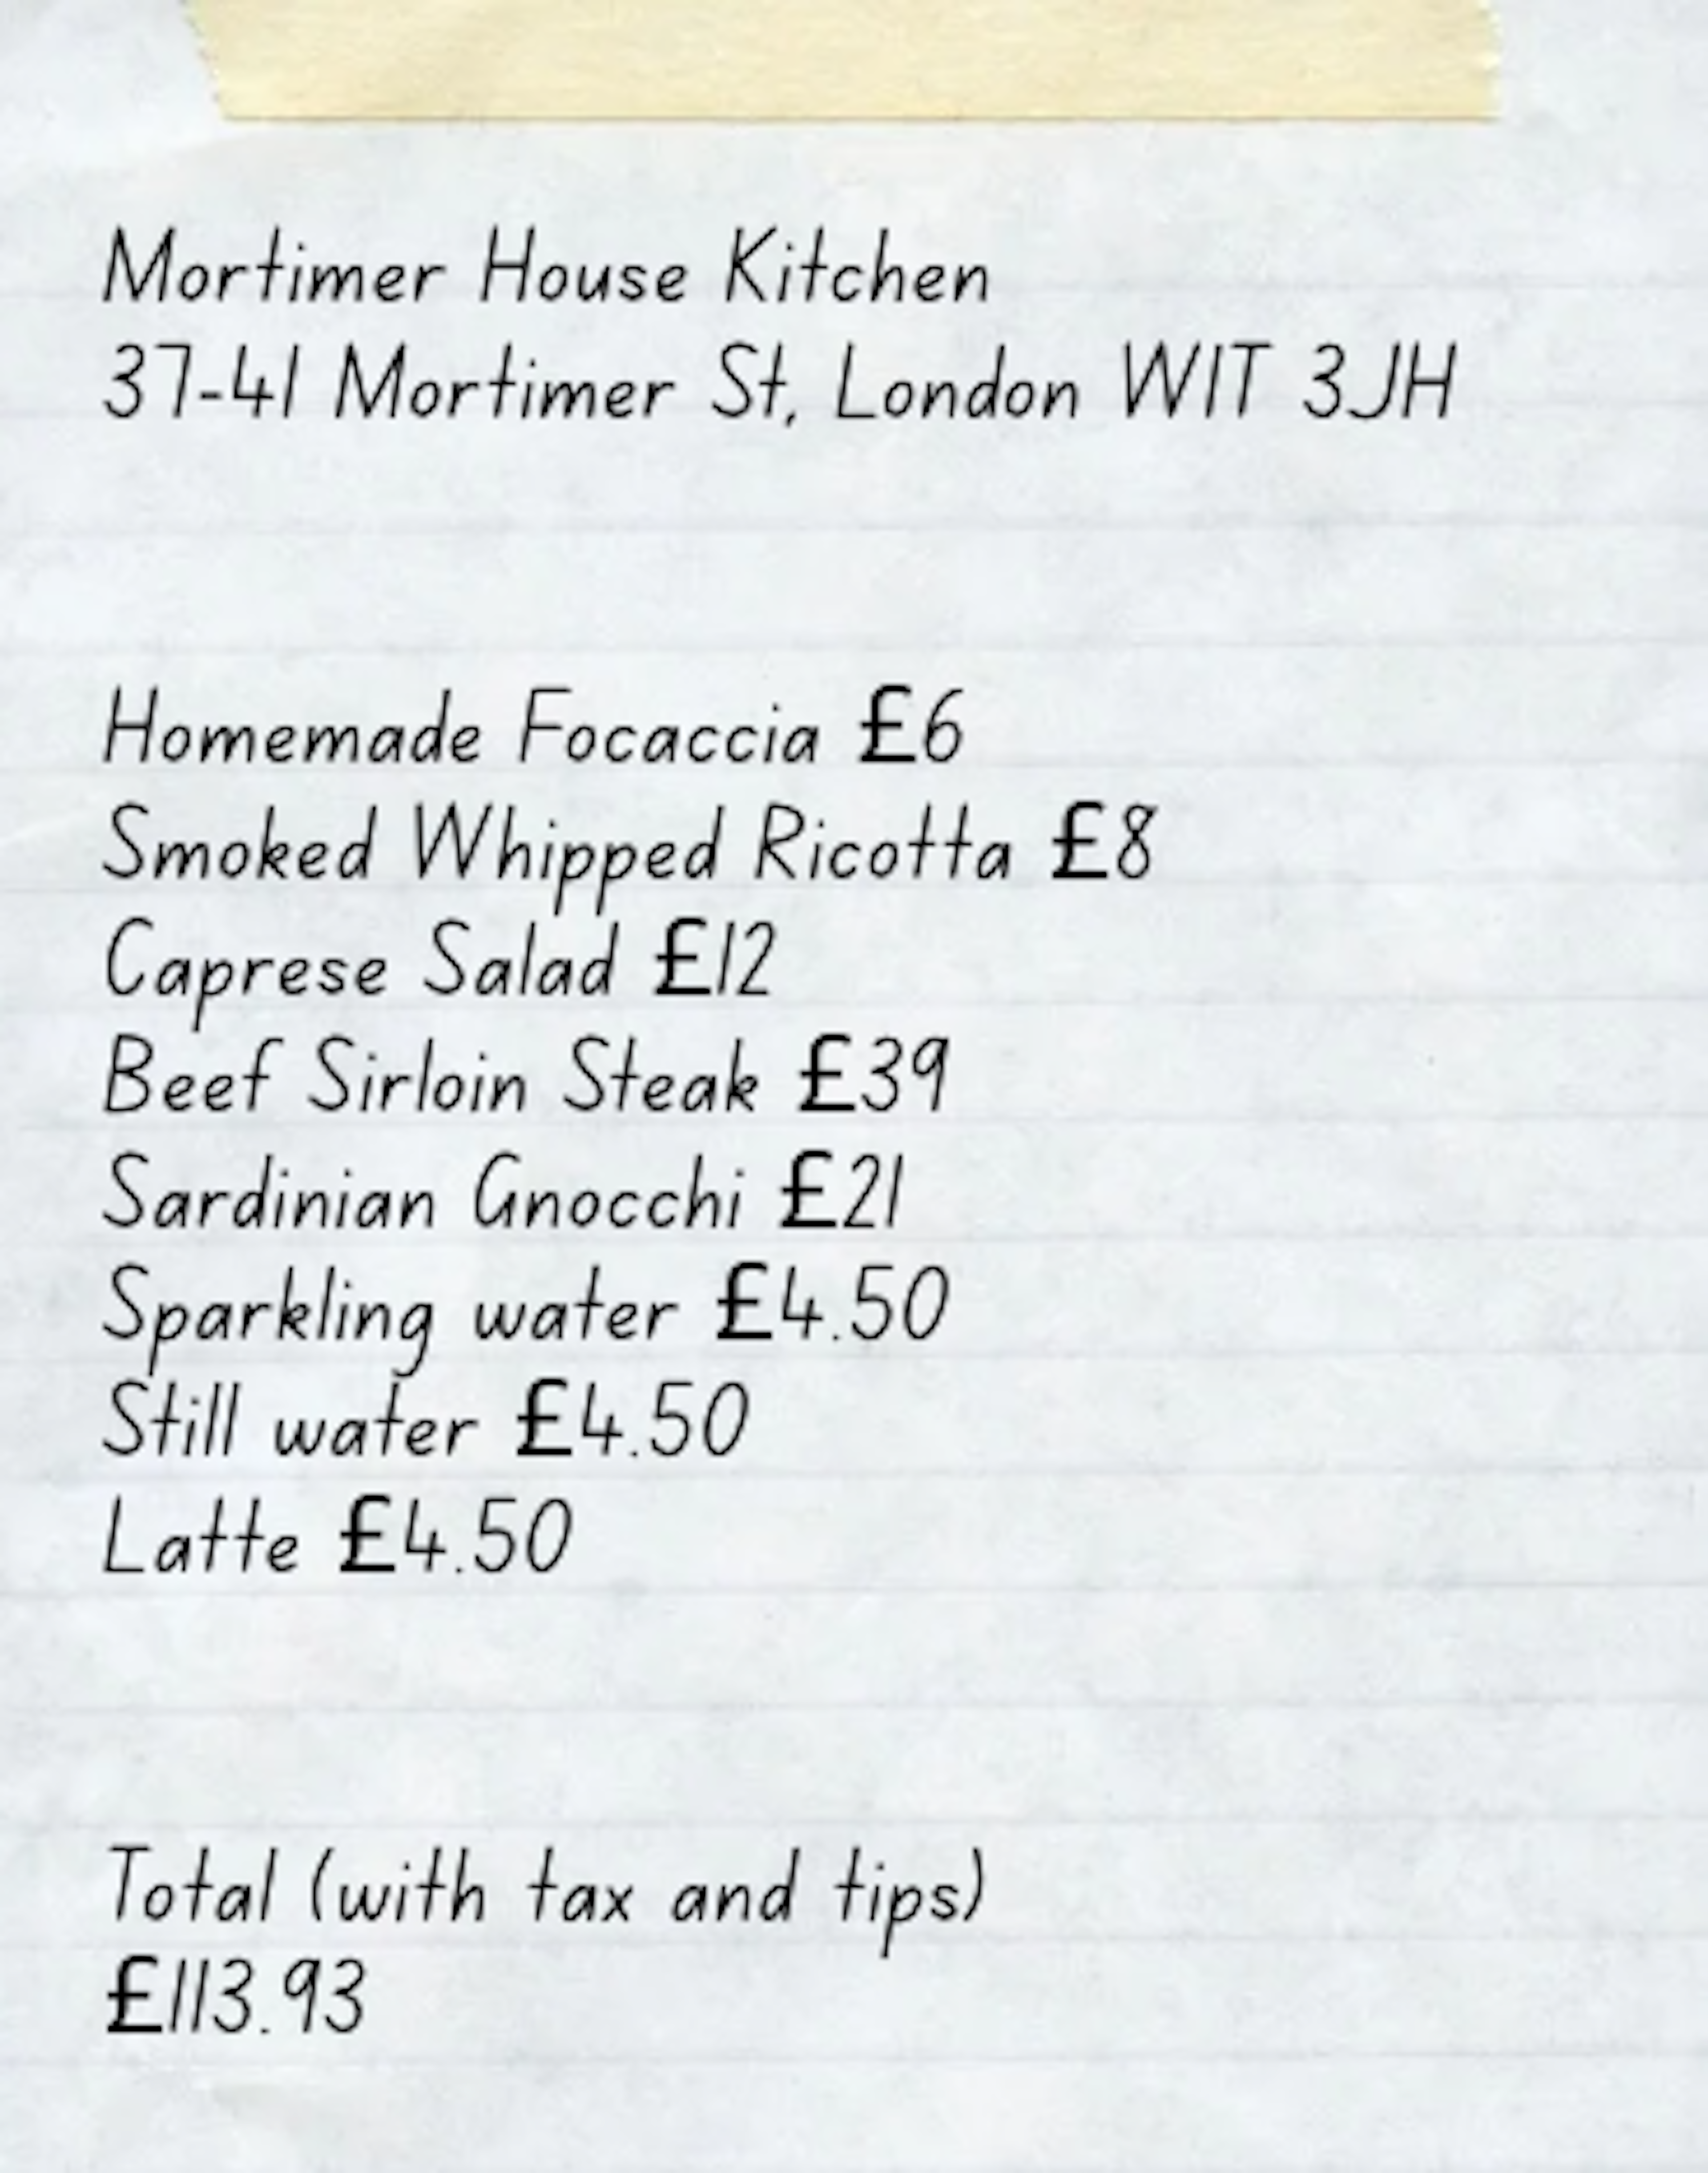 Mortimer House Kitchen
37-41 Mortimer St, London W1T 3JH
Homemade Focaccia £6
Smoked Whipped Ricotta £8
Caprese Salad £12
Beef Sirloin Steak £39
Sardinian Gnocchi £21
Sparkling water £4.50
Still water £4.50
Latte £4.50
Total (with tax and tips)
£113.93